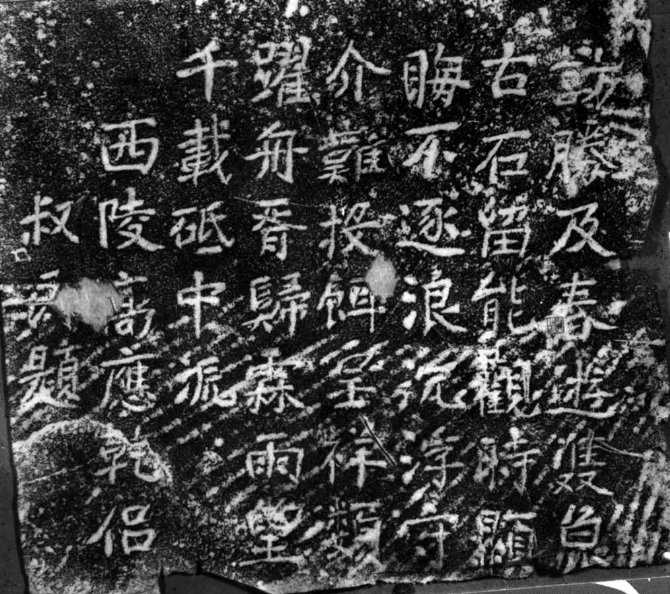 訪勝及春遊雙魚
古石留能觀時顯
晦不逐浪沉浮守
介難投餌呈祥類
躍舟胥歸霖雨望
千載砥中流
西陵高應乾侶
叔題